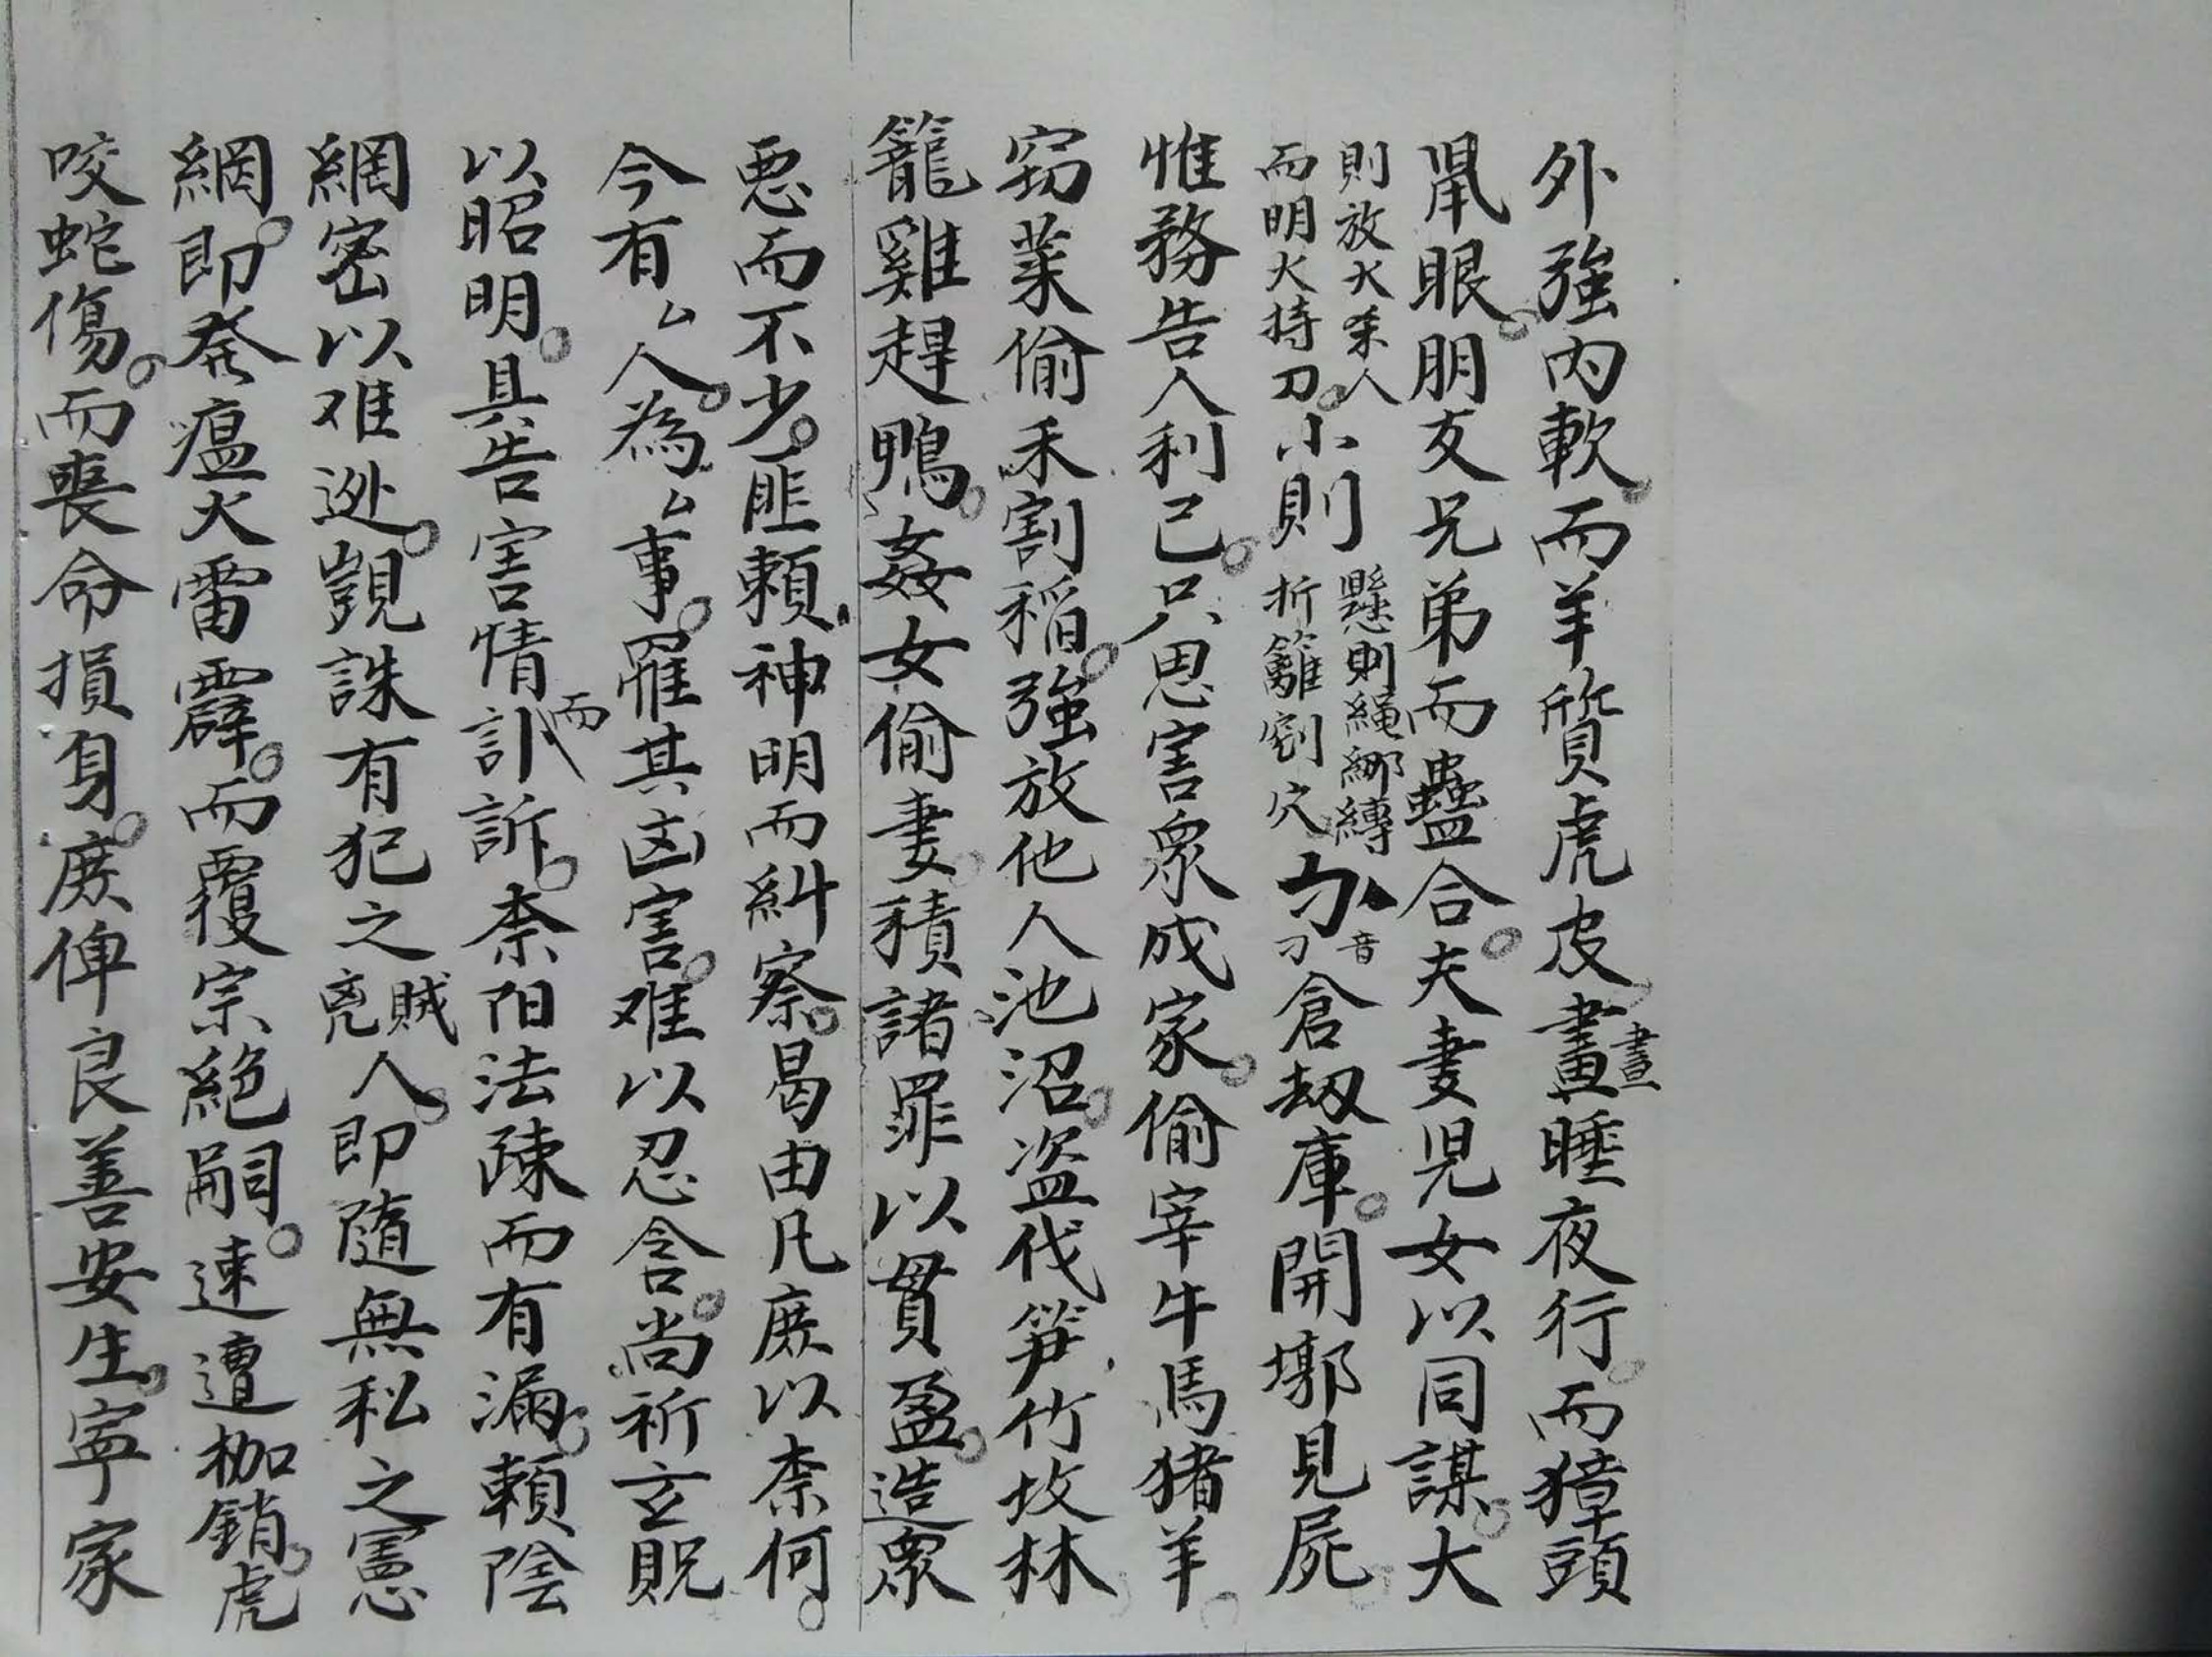 外強内軟而羊質虎皮畫晝睡夜行而獐頭
鼠眼朋友兄弟而蠱合夫妻児女以同謀大
則放火杀人而明火持刀小則懸則繩綁縛折籬割穴音刁倉刼庫開墎見屍
惟務告人利己只思害眾成家偷宰牛馬猪羊
窃菜偷禾割稲強放他人池沼盗伐笋竹坟林
籠雞趕鴨姦女偷妻積諸罪以貫盈造眾
悪而不少匪頼神明而糾察曷由凡庻以柰何
今有厶人為厶事罹其凶害难以忍含尚祈立貺
以昭明具告害情訃而訴柰阳法疎而有漏頼陰
網密以难逊覬誅有犯之賊兇人即隨無私之憲
網即発瘟火雷霹而覆宗絶嗣速遭枷銷虎
咬蛇傷而喪命損身庻俾良善安生寧家